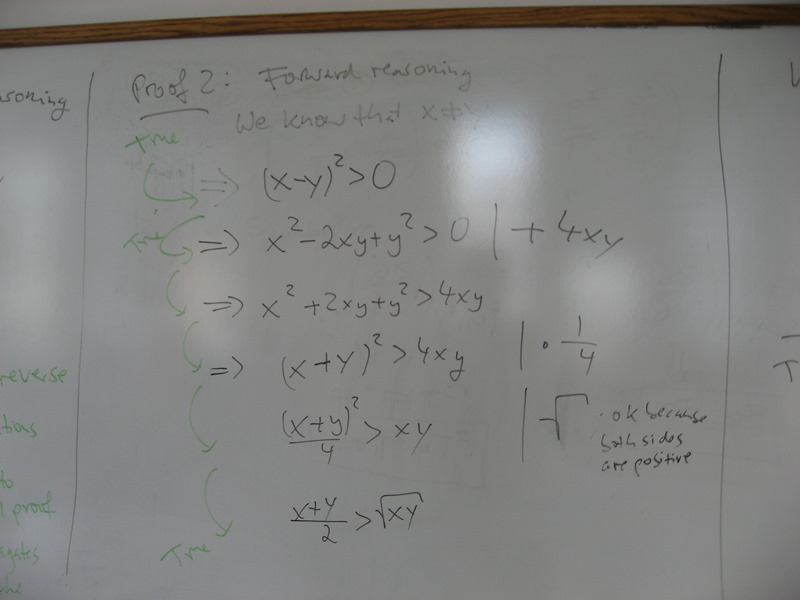 asoning
reverse
tions
to
proof
agates
the
Proof 2: Forward reasoning
We know that x ≠ y
True
=> (x-y)² > 0
True => x² - 2xy + y² > 0 | + 4xy
=> x² + 2xy + y² > 4xy
=> (x+y)² > 4xy | · 1/4
(x+y)²/4 > xy | √ · ok because
both sides
are positive
x+y/2 > √xy
True
T